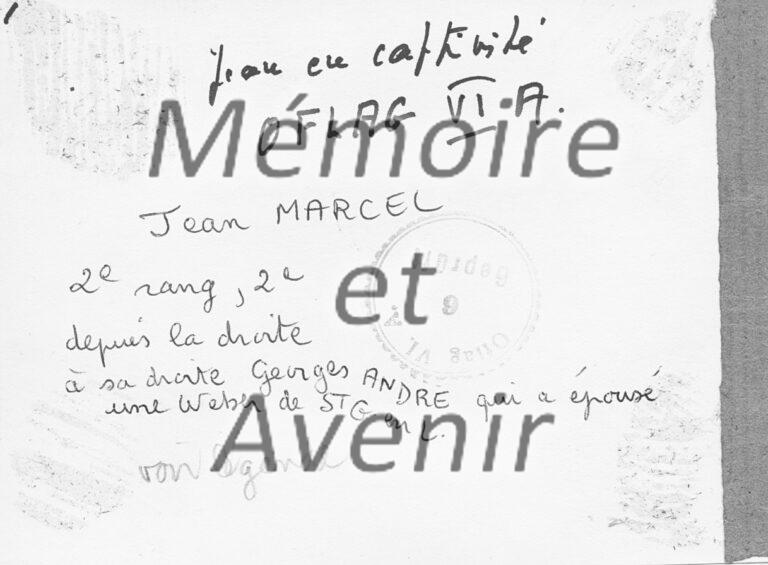 Jean en captivité
OFLAG VI A.
Mémoire
Jean MARCEL
et
2e rang, 2e
depuis la droite
à sa droite Georges ANDRÉ qui a épousé
une Weber de ST G en L.
Avenir
voir
Geprüft
9
Oflag VI A